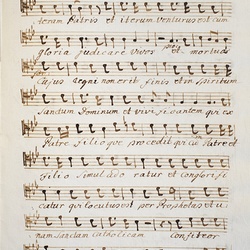 iterum Patris et iterum venturus est cum
gloria judicare vivos et mortuos
Cujus regni non erit finis et in spiritum
sanctum Dominum et vivificantem qui ex
Patre filioque procedit qui cu Patre et
Filio simul ado ratur et conglorifi
catur qui locutus est per Prophetas et u
nam sanctam catholicam confiteor